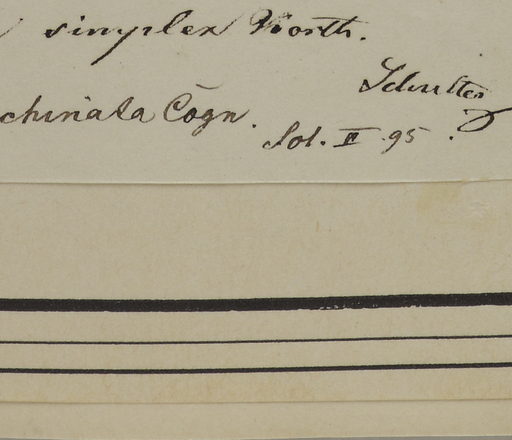 simplex North.
Schultes
chinata Cogn.
Sol. II 95.